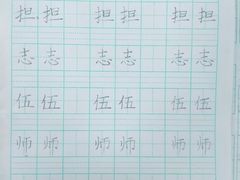 担担 担担 担担
志志 志志 志志
伍伍 伍伍 伍伍
师师 师师 师师